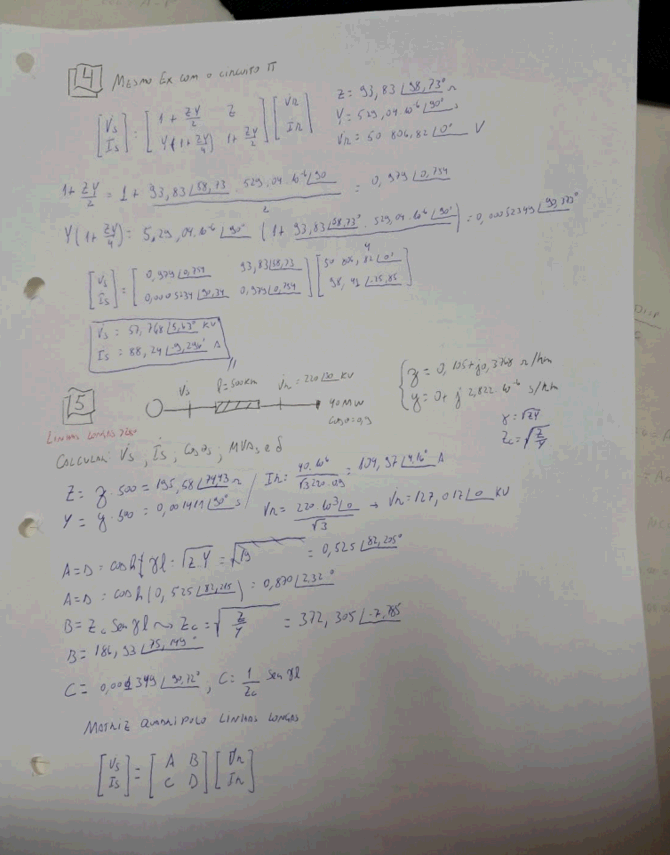 4 MESMO EX COM O CIRCUITO π
[Vs Is] = [1 + ZY/2 Z Y(1+ZY/4) 1+ZY/2] [VR IR]
Z = 93,83∠58,73° Ω
Y = 529,04·10⁻⁶∠90° s
VR = 50 806,82∠0° V
1+ZY/2 = 1 + 93,83∠58,73 · 529,04·10⁻⁶∠90 / 2 = 0,979∠0,754
Y(1+ZY/4) = 5,29,04·10⁻⁶∠90° (1+ 93,83∠58,73° · 529,04·10⁻⁶∠90° / 4) = 0,00052349∠90,373°
[Vs Is] = [0,979∠0,754 93,83∠58,73 0,0005234∠90,34 0,979∠0,754] [50 806,82∠0° 98,41∠-25,85]
Vs = 57,768∠5,63° KV
Is = 88,24∠-9,296° A
5 Vs l=500km Vr = 220∠0 KV
40 MW
cosφ=0,9
z = 0,105+j0,3768 Ω/km
y = 0+j 2,822·10⁻⁶ s/km
γ = √zy
Zc = √Z/Y
LINHAS LONGAS
CALCULAR Vs, Is, cosφs, MVAs, e δ
Z = z·500 = 195,58∠74,43 Ω
IR = 40·10⁶ / √3·220·0,9 = 104,97∠ A
Y = y·500 = 0,001411∠90° s
VR = 220·10³∠0 / √3 → VR = 127,017∠0 KV
A=D = cosh γl = √Z.Y = = 0,525∠82,215°
A=D = cosh(0,525∠82,215) = 0,870∠2,32°
B = Zc Sen γl → Zc = √Z/Y = 372,305∠-7,785
B = 186,93∠75,149°
C = 0,001349∠90,72°, C = 1/Zc Sen γl
MATRIZ QUADRIPOLO LINHAS LONGAS
[Vs Is] = [A B C D] [VR IR]